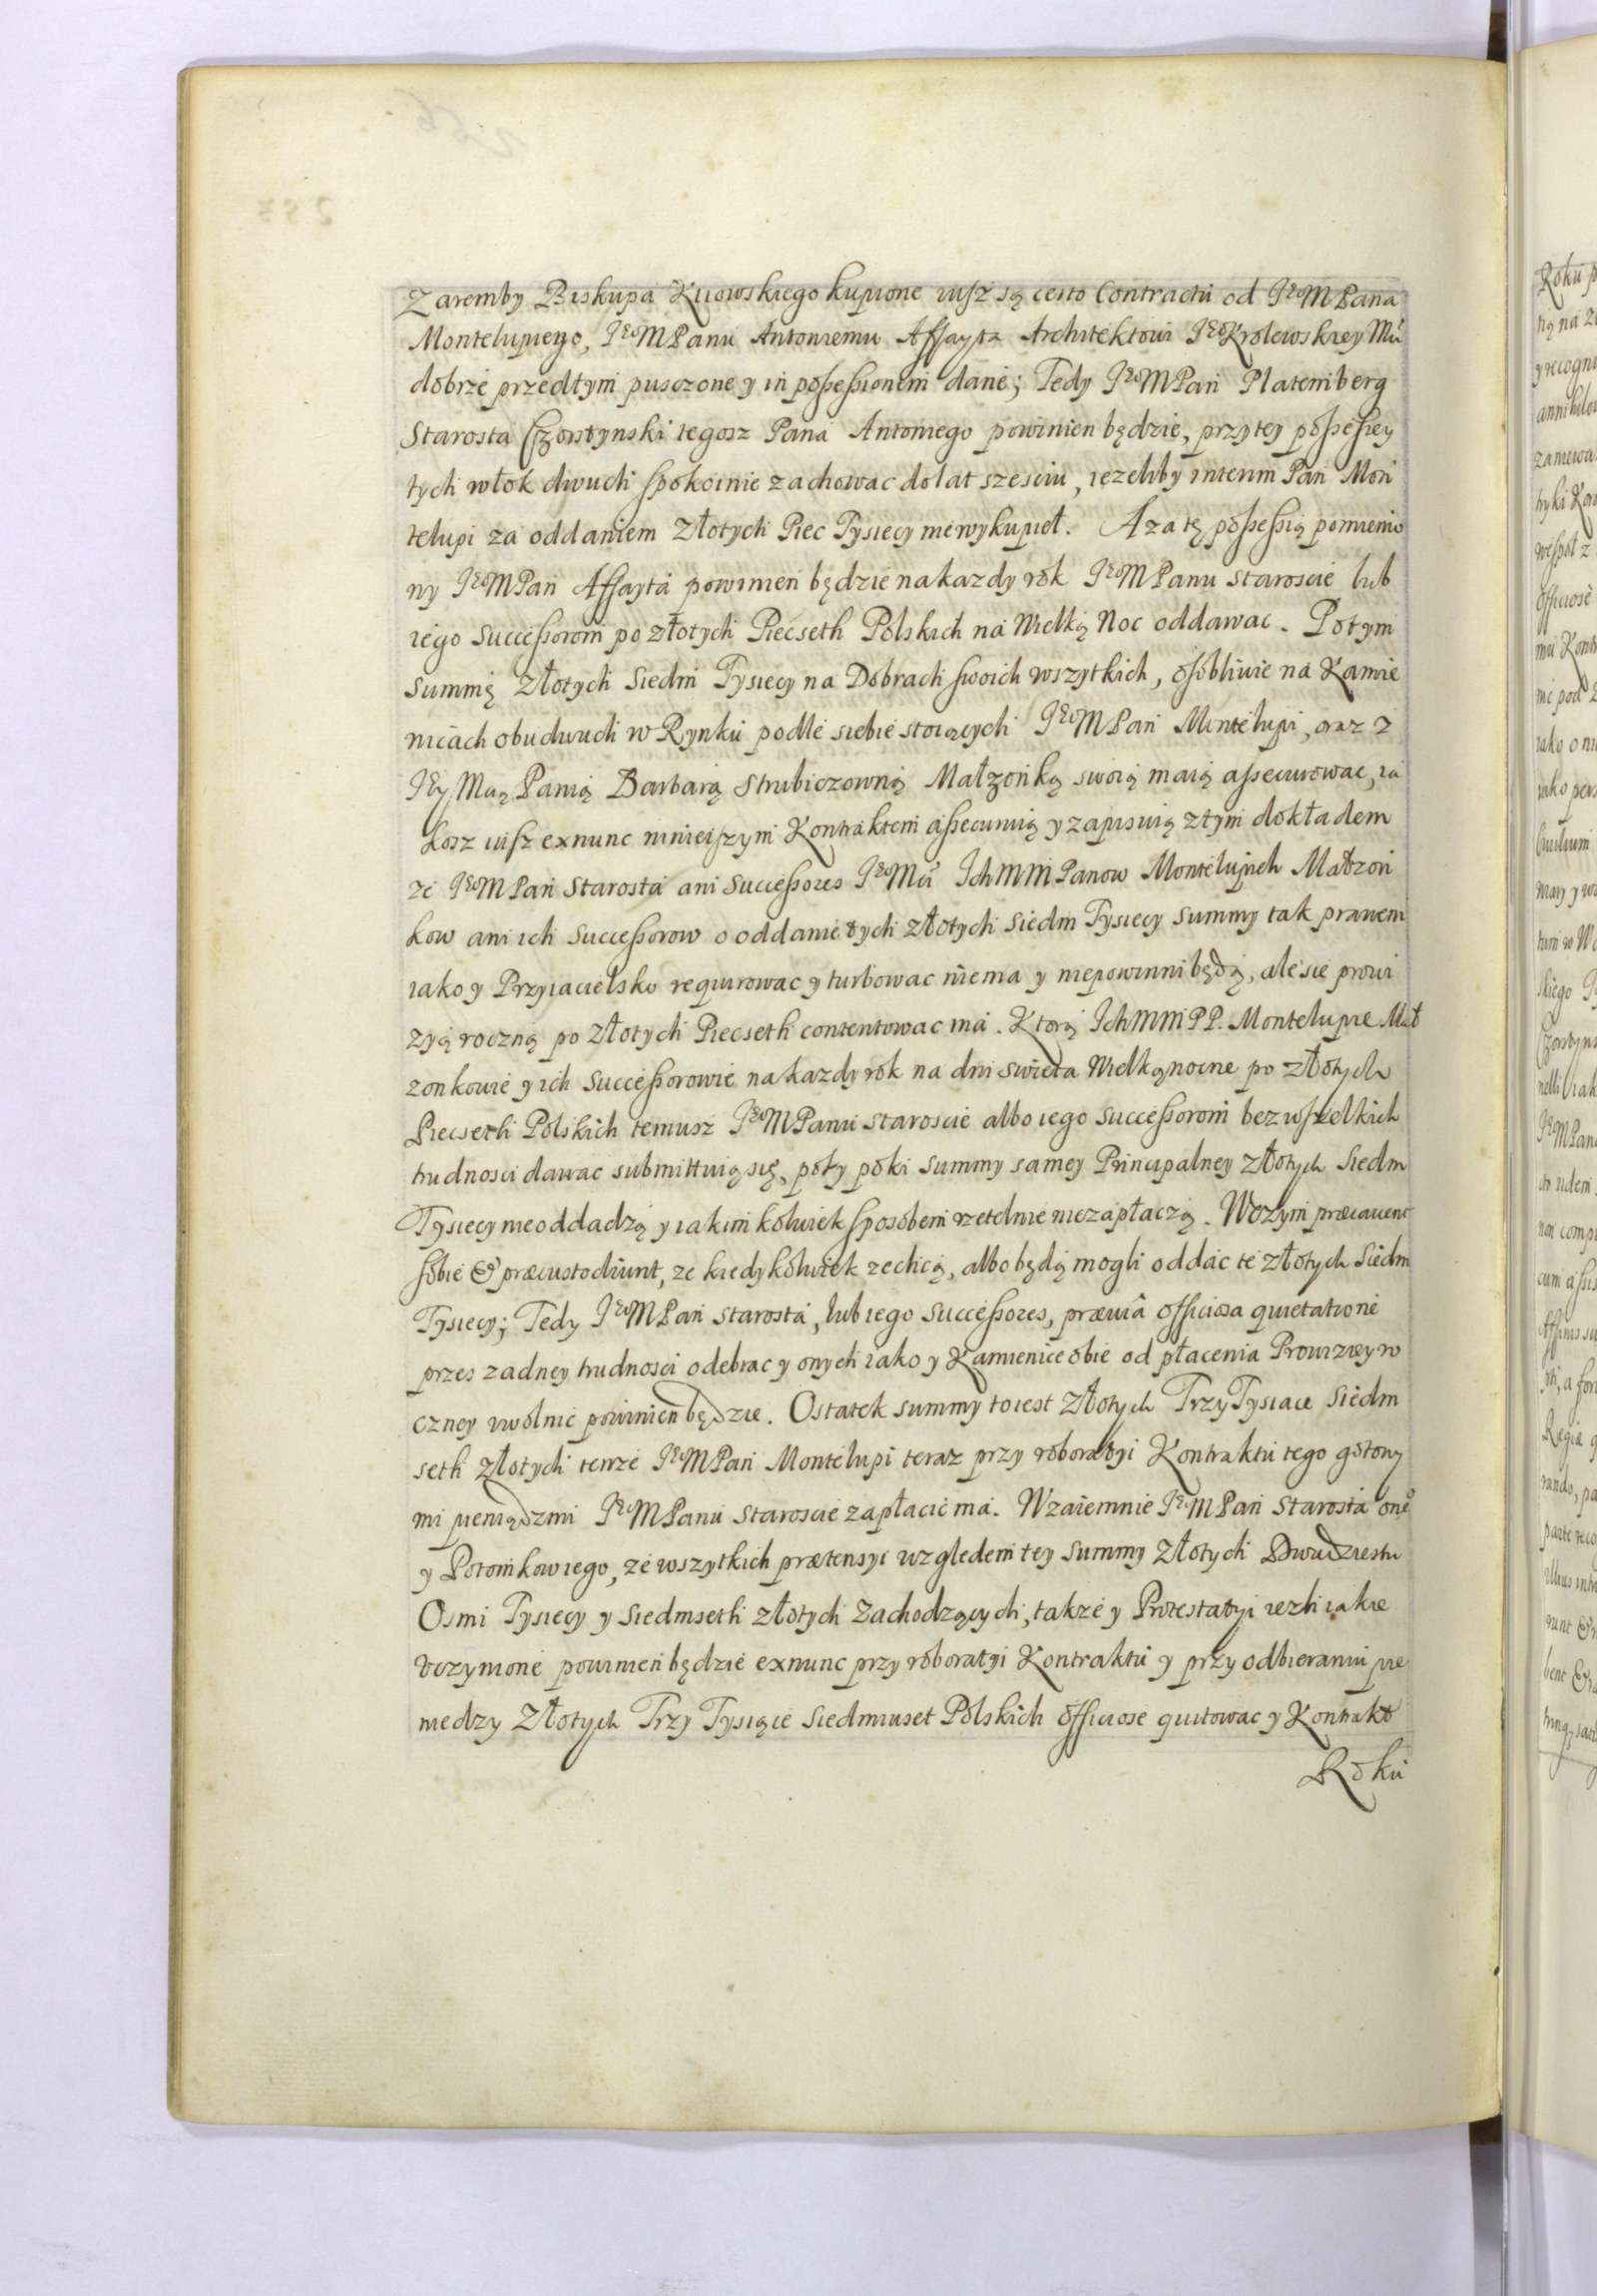 Zaremby Biskupa Kiiowskiego kupione iusz są certo Contractu od JegoM Pana
Montelupiego, JegoMPanu Antoniemu Affayta Architektowi JegoKrolewskiey Mci
dobrze przedtym pusczone y in possessionem dane; Tedy JegoMPan Platemberg
Starosta Czorstynski tegosz Pana Antoniego powinien będzie, przy tey possessiey
tych włok dwuch spokoinie zachowac do lat szesciu, iezeliby interim Pan Mon
telupi za oddaniem złotych Piec Tysiecy niewykupieł. A za tę possessią pomienio
ny JegoMPan Affayta powinien będzie nakazdy rok JegoMPanu staroscie lub
iego Successorom po złotych Piecseth Polskich na Wielką Noc oddawac. Potym
summą złotych Siedm Tysiecy na Dobrach swoich wszytkich, osobliwie na Kamie
nicach obudwuch w Rynku podle siebie stoiących JegoMPan Montelupi, oraz z
Jey Mcią Panią Barbarą Strubiczowną Małzonką swoią maią assecurowac, ia
kosz iusz exnunc ninieiszym Kontraktem assecuruią y zapisuią z tym dokładem
ze JegoMPan Starosta ani Successores JegoMci IchMM Panow Montelupich Małzon
kow ani ich Successorow o oddanie tych złotych Siedm Tysiecy Summy tak prawem
iako y Przyiacielsko requirowac y turbowac niema y niepowinni będą, ale sie prowi
zyą roczną po złotych Piecseth contentowac ma. Ktorą IchMM PP. Montelupie Mał
zonkowie y ich Successorowie nakazdy rok na dni swieta Wielkąnocne po złotych
Piecseth Polskich temusz JegoMPanu staroscie albo iego successorom bez wszelkich
trudnosci dawac submittuią się, poty poki summy samey Principalney złotych Siedm
Tysiecy nieoddadzą y iakim kolwiek sposobem rzetelnie niezapłaczą. W czym præcavent
sobie & præcustodiunt, ze kiedykolwiek zechcą, albo będą mogli oddac te złotych Siedm
Tysiecy; Tedy JegoMPan starosta, lub iego successores, præviâ officiosa quietatione
przes zadney trudnosci odebrac y onych iako y Kamienice obie od płacenia Prowizyey ro
czney uwolnic powinien będzie. Ostatek summy to iest złotych Trzy Tysiace Siedm
seth złotych tenze JegoMPan Montelupi teraz przy roboratyi Kontraktu tego gotowy
mi pieniądzmi JegoMPanu staroscie zapłacic ma. Wzaiemnie JegoMPan starosta onego
y Potomkow iego, ze wszytkich prætensyi względem tey summy złotych Dwudziestu
Osmi Tysiecy y Siedmseth złotych zachodzących, takze y Protestatyi iezli iakie
uczynione powinien będzie exnunc przy roboratyi Kontraktu y przy odbieraniu pie
niedzy złotych Trzy Tysiące Siedmiuset Polskich officiose quitowac y Kontrakt
Roku